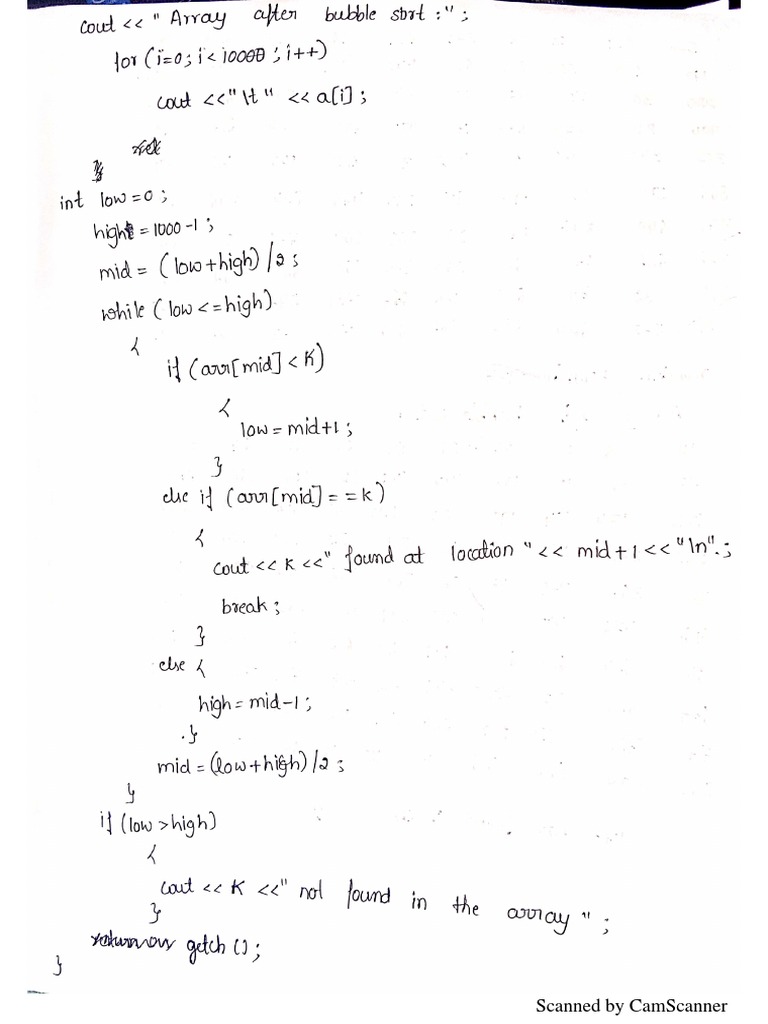 cout << " Array after bubble sort :" ;
for (i=0; i< 10000 ; i++)
cout <<"\t" << a[i] ;
}
int low=0 ;
high = 1000-1 ;
mid = (low+high) /2 ;
while ( low <=high)
{
if (arr[mid] < K)
{
low = mid+1 ;
}
else if (arr[mid] = = k)
{
cout << K <<" found at location " << mid+1 <<"\n". ;
break ;
}
else {
high = mid-1 ;
}
mid = (low+high) /2 ;
}
if (low >high)
{
cout << K <<" not found in the array " ;
}
getch () ;
}
Scanned by CamScanner